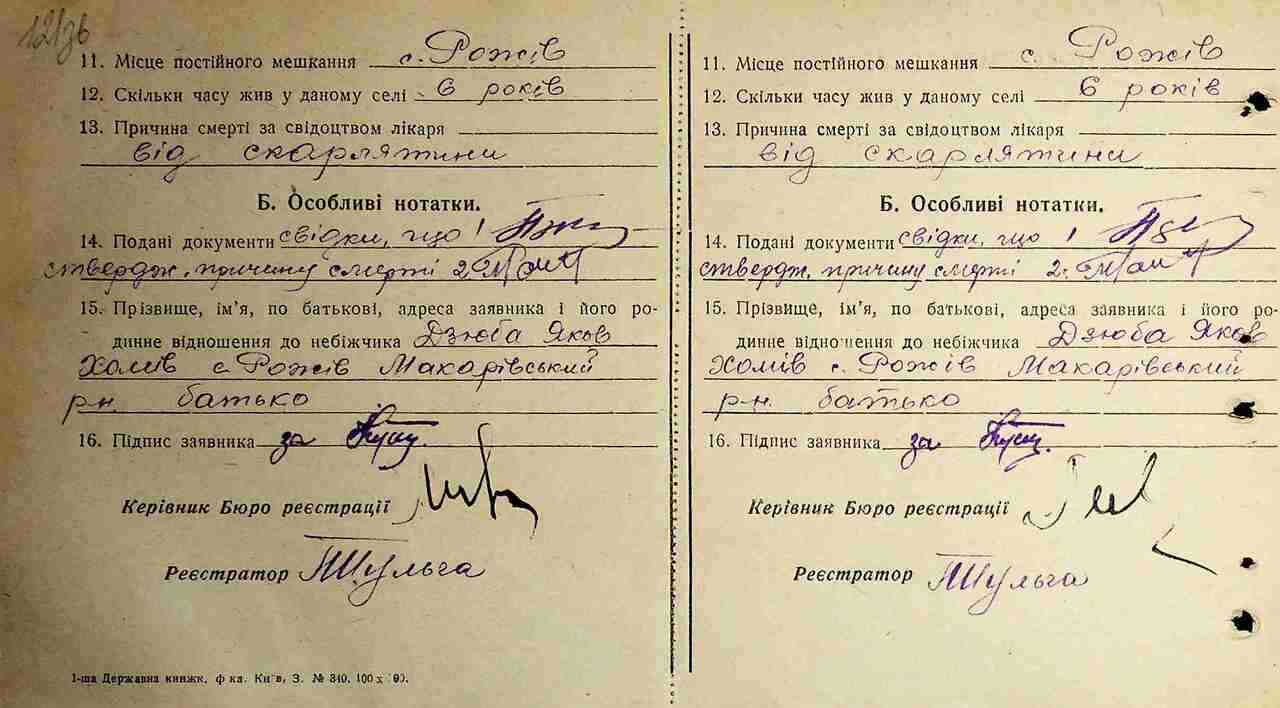 11. Місце постійного мешкання с. Рожів
12. Скільки часу жив у даному селі 6 років
13. Причина смерті за свідоцтвом лікаря
від скарлятини
Б. Особливі нотатки.
14. Подані документи свідки, що 1
ствердж. причину смерті 2.
15. Прізвище, ім’я, по батькові, адреса заявника і його ро-
динне відношення до небіжчика Дзюба Яков
Хомів с. Рожів Макарівський
р-н. батько
16. Підпис заявника за
Керівник Бюро реєстрації
Реєстратор Шульга
1-ша Державна книжк. ф ка. Київ, З. № 340. 100 х
11. Місце постійного мешкання с. Рожів
12. Скільки часу жив у даному селі 6 років
13. Причина смерті за свідоцтвом лікаря
від скарлятини
Б. Особливі нотатки.
14. Подані документи свідки, що 1
ствердж. причину смерті 2.
15. Прізвище, ім’я, по батькові, адреса заявника і його ро-
динне відношення до небіжчика Дзюба Яков
Хомів с. Рожів Макарівський
р-н. батько
16. Підпис заявника за
Керівник Бюро реєстрації
Реєстратор Шульга